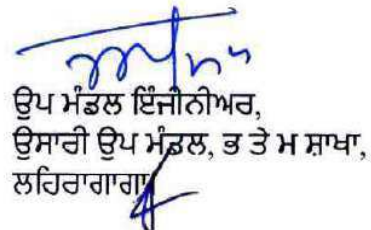 ਉਪ ਮੰਡਲ ਇੰਜੀਨੀਅਰ,
ਉਸਾਰੀ ਉਪ ਮੰਡਲ, ਭ ਤੇ ਮ ਸ਼ਾਖਾ,
ਲਹਿਰਾਗਾਗਾ